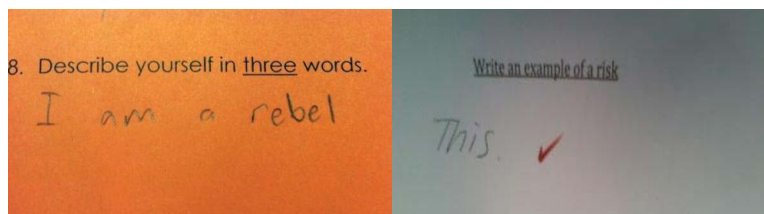 8. Describe yourself in three words.
I am a rebel
Write an example of a risk
This.